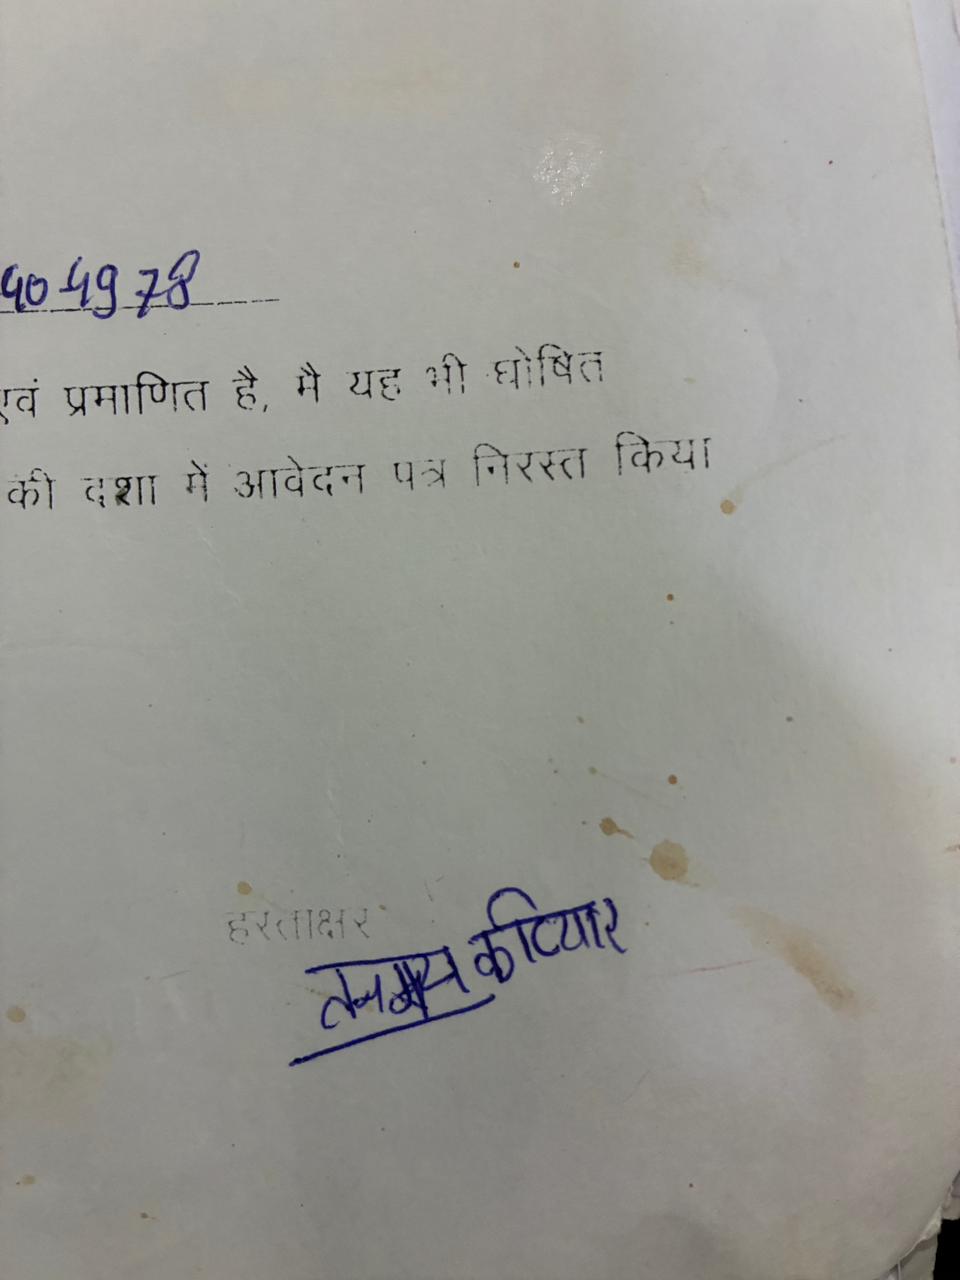 404978
एवं प्रमाणित है, मै यह भी घोषित
की दशा में आवेदन पत्र निरस्त किया
हस्ताक्षर
कटियार